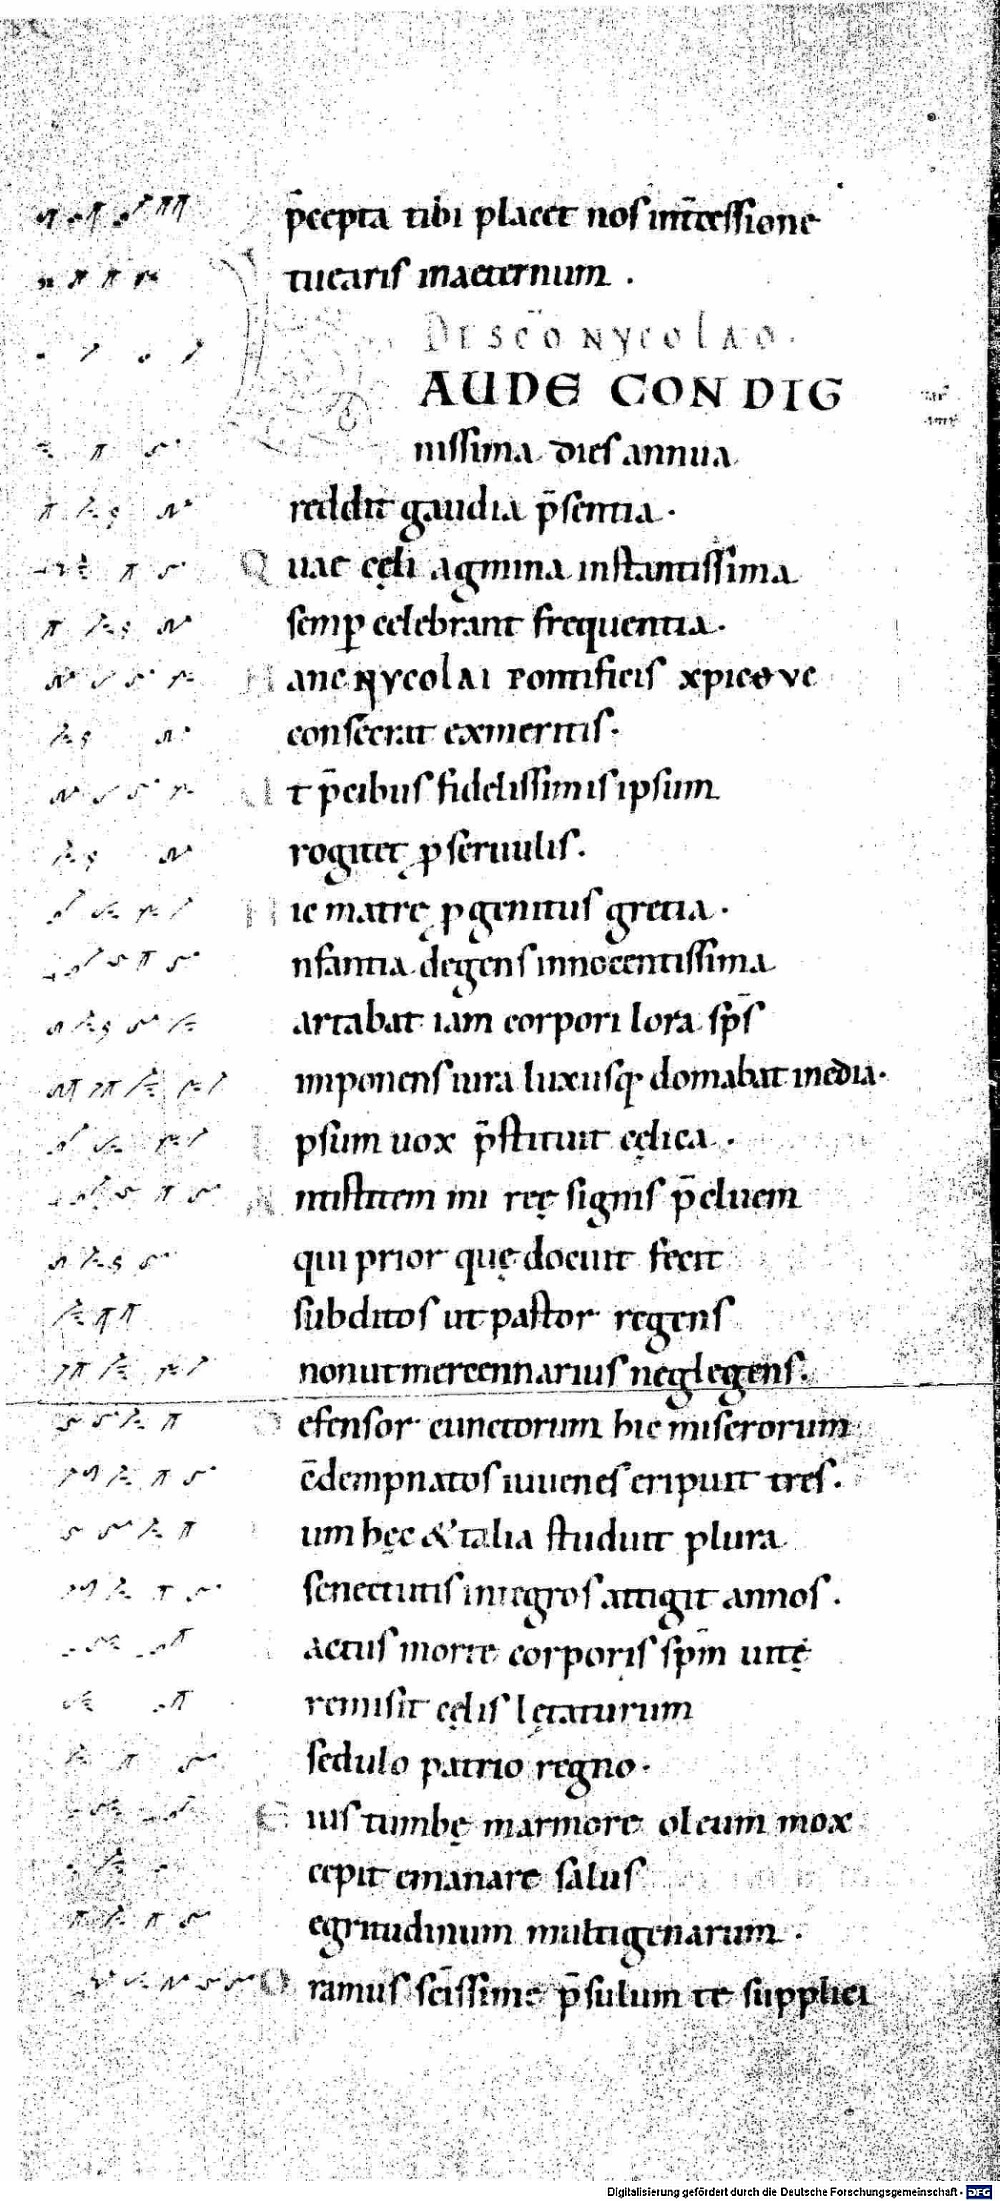 p̄cepta tibi placet nos int̄cessione
tuearis inaeternum .
DE SC̄O NYCOLAO.
LAUDE CONDIG
nissima dies annua
reddit gaudia p̄sentia.
Quae cęli agmina instantissima
semꝑ celebrant frequentia.
Hanc NYcolAI pontificis xp̄icque
consecrat exmeritis.
Ut p̄cibus fidelissimis ipsum
rogitet ꝓ seruulis.
Hic matrę ꝓgenitus grecia.
nfantia degens innocentissima
artabat iam corpori lora sp̄s
imponens iura luxusq; domabat inedia.
Ipsum uox p̄stituit cęlica .
Antistitem mi reę signis p̄cluem
qui prior quę docuit fecit
subditos ut pastor regens
nonutmercennarius neglegens.
Defensor cunctorum hic miserorum
c̄dempnatos iuuenes eripuit tres.
um hęc & talia studuit plura
senectutis integros attigit annos .
actus morte corporis sp̄m uitę
remisit cęlis lętaturum
sedulo patrio regno.
Eius tumbę marmore oleum mox
cepit emanare salus
egritudinum multigenarum .
Oramus sc̄issime p̄sulum te supplici
Digitalisierung gefördert durch die Deutsche Forschungsgemeinschaft - DFG